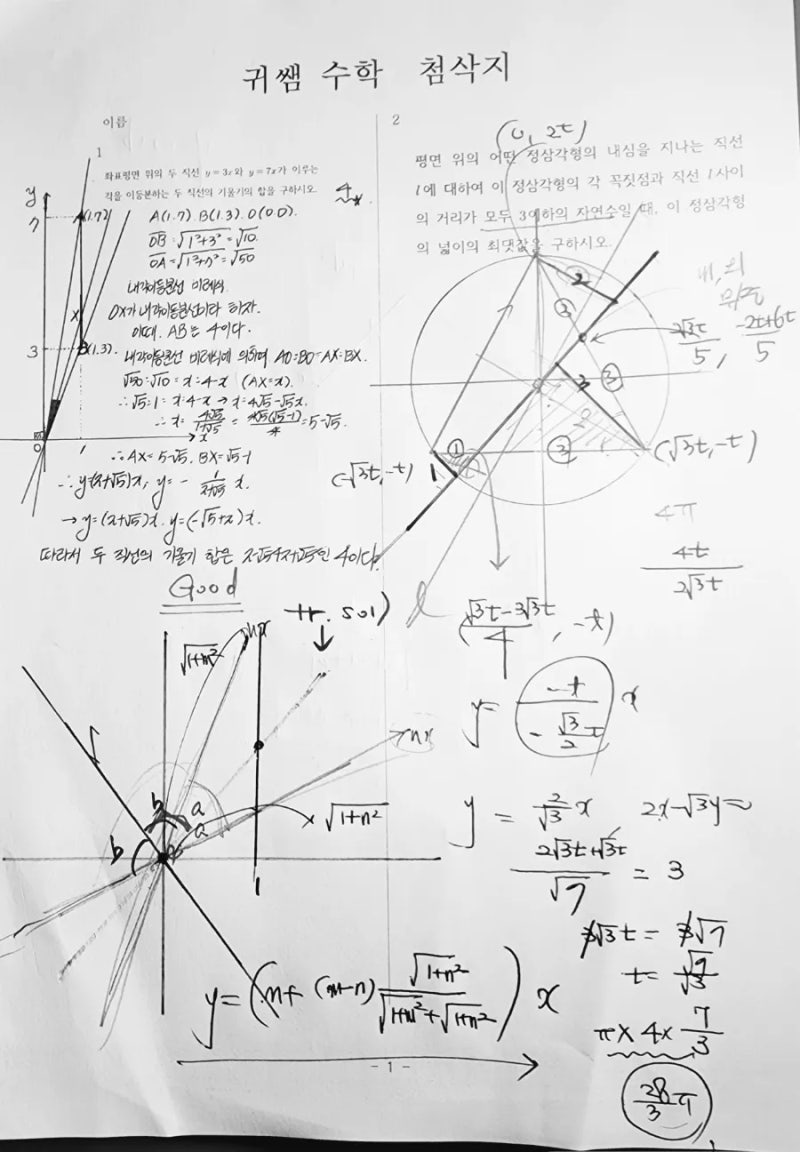 귀쌤 수학 첨삭지
이름
1
좌표평면 위의 두 직선 y = 3x와 y = 7x가 이루는
각을 이등분하는 두 직선의 기울기의 합을 구하시오.
4
y
7
A(1.7)
x
3
B(1.3).
1
x
A(1.7) B(1.3). O(0.0).
OB = √1²+3² = √10.
OA = √1²+7² = √50
내각이등분선 비례식
OX가 내각이등분선이라 하자.
이때. AB는 4이다.
내각이등분선 비례식에 의하여 AO:BO=AX:BX.
√50:√10 = x:4-x (AX=x).
∴ √5:1 = x:4-x → x=4√5-√5x.
∴ x = 4√5/(1+√5) = 4√5(√5-1)/4 = 5-√5.
∴ AX = 5-√5. BX = √5-1
∴ y=(2+√5)x, y = - 1/(2+√5) x.
→ y=(2+√5)x. y=(-√5+2)x.
따라서 두 직선의 기울기 합은 4이다.
Good
tr. sol)
√1+m²
mx
nx
l
b
a
b
a
√1+n²
1
y = (n + (m-n) √1+n²/(√1+m²+√1+n²)) x
2
(0, 2t)
평면 위의 어떤 정삼각형의 내심을 지나는 직선
l에 대하여 이 정삼각형의 각 꼭짓점과 직선 l사이
의 거리가 모두 3이하의 자연수일 때, 이 정삼각형
의 넓이의 최댓값을 구하시오.
내, 외
2√3t/5, -2t+6t/5
2
③
③
3
①
③
1
2
(-√3t, -t)
(√3t, -t)
4π
4t/2√3t
l
(√3t-3√3t/4, -t)
y = -t/(-√3/2 t) x
y = 2/√3 x
2x-√3y=0
2√3t+√3t/√7 = 3
3√3t = 3√7
t = √7/√3
π × 4 × 7/3
28/3 π
- 1 -